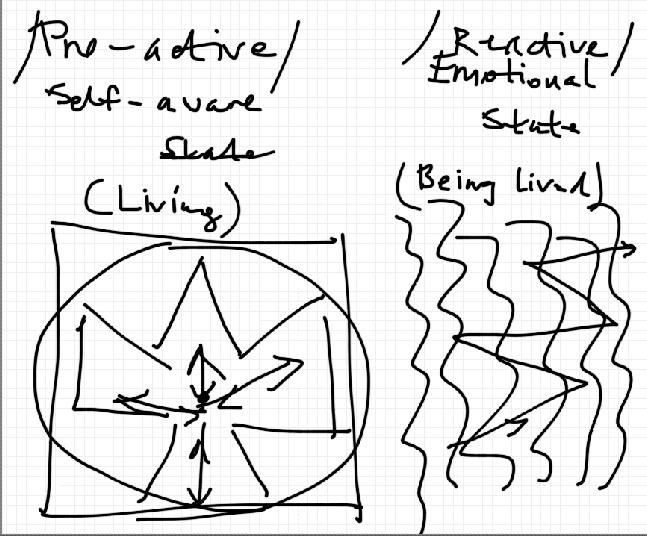 /Pro-active/
Self-aware
State
(Living)
/Reactive/
Emotional
State
(Being Lived)